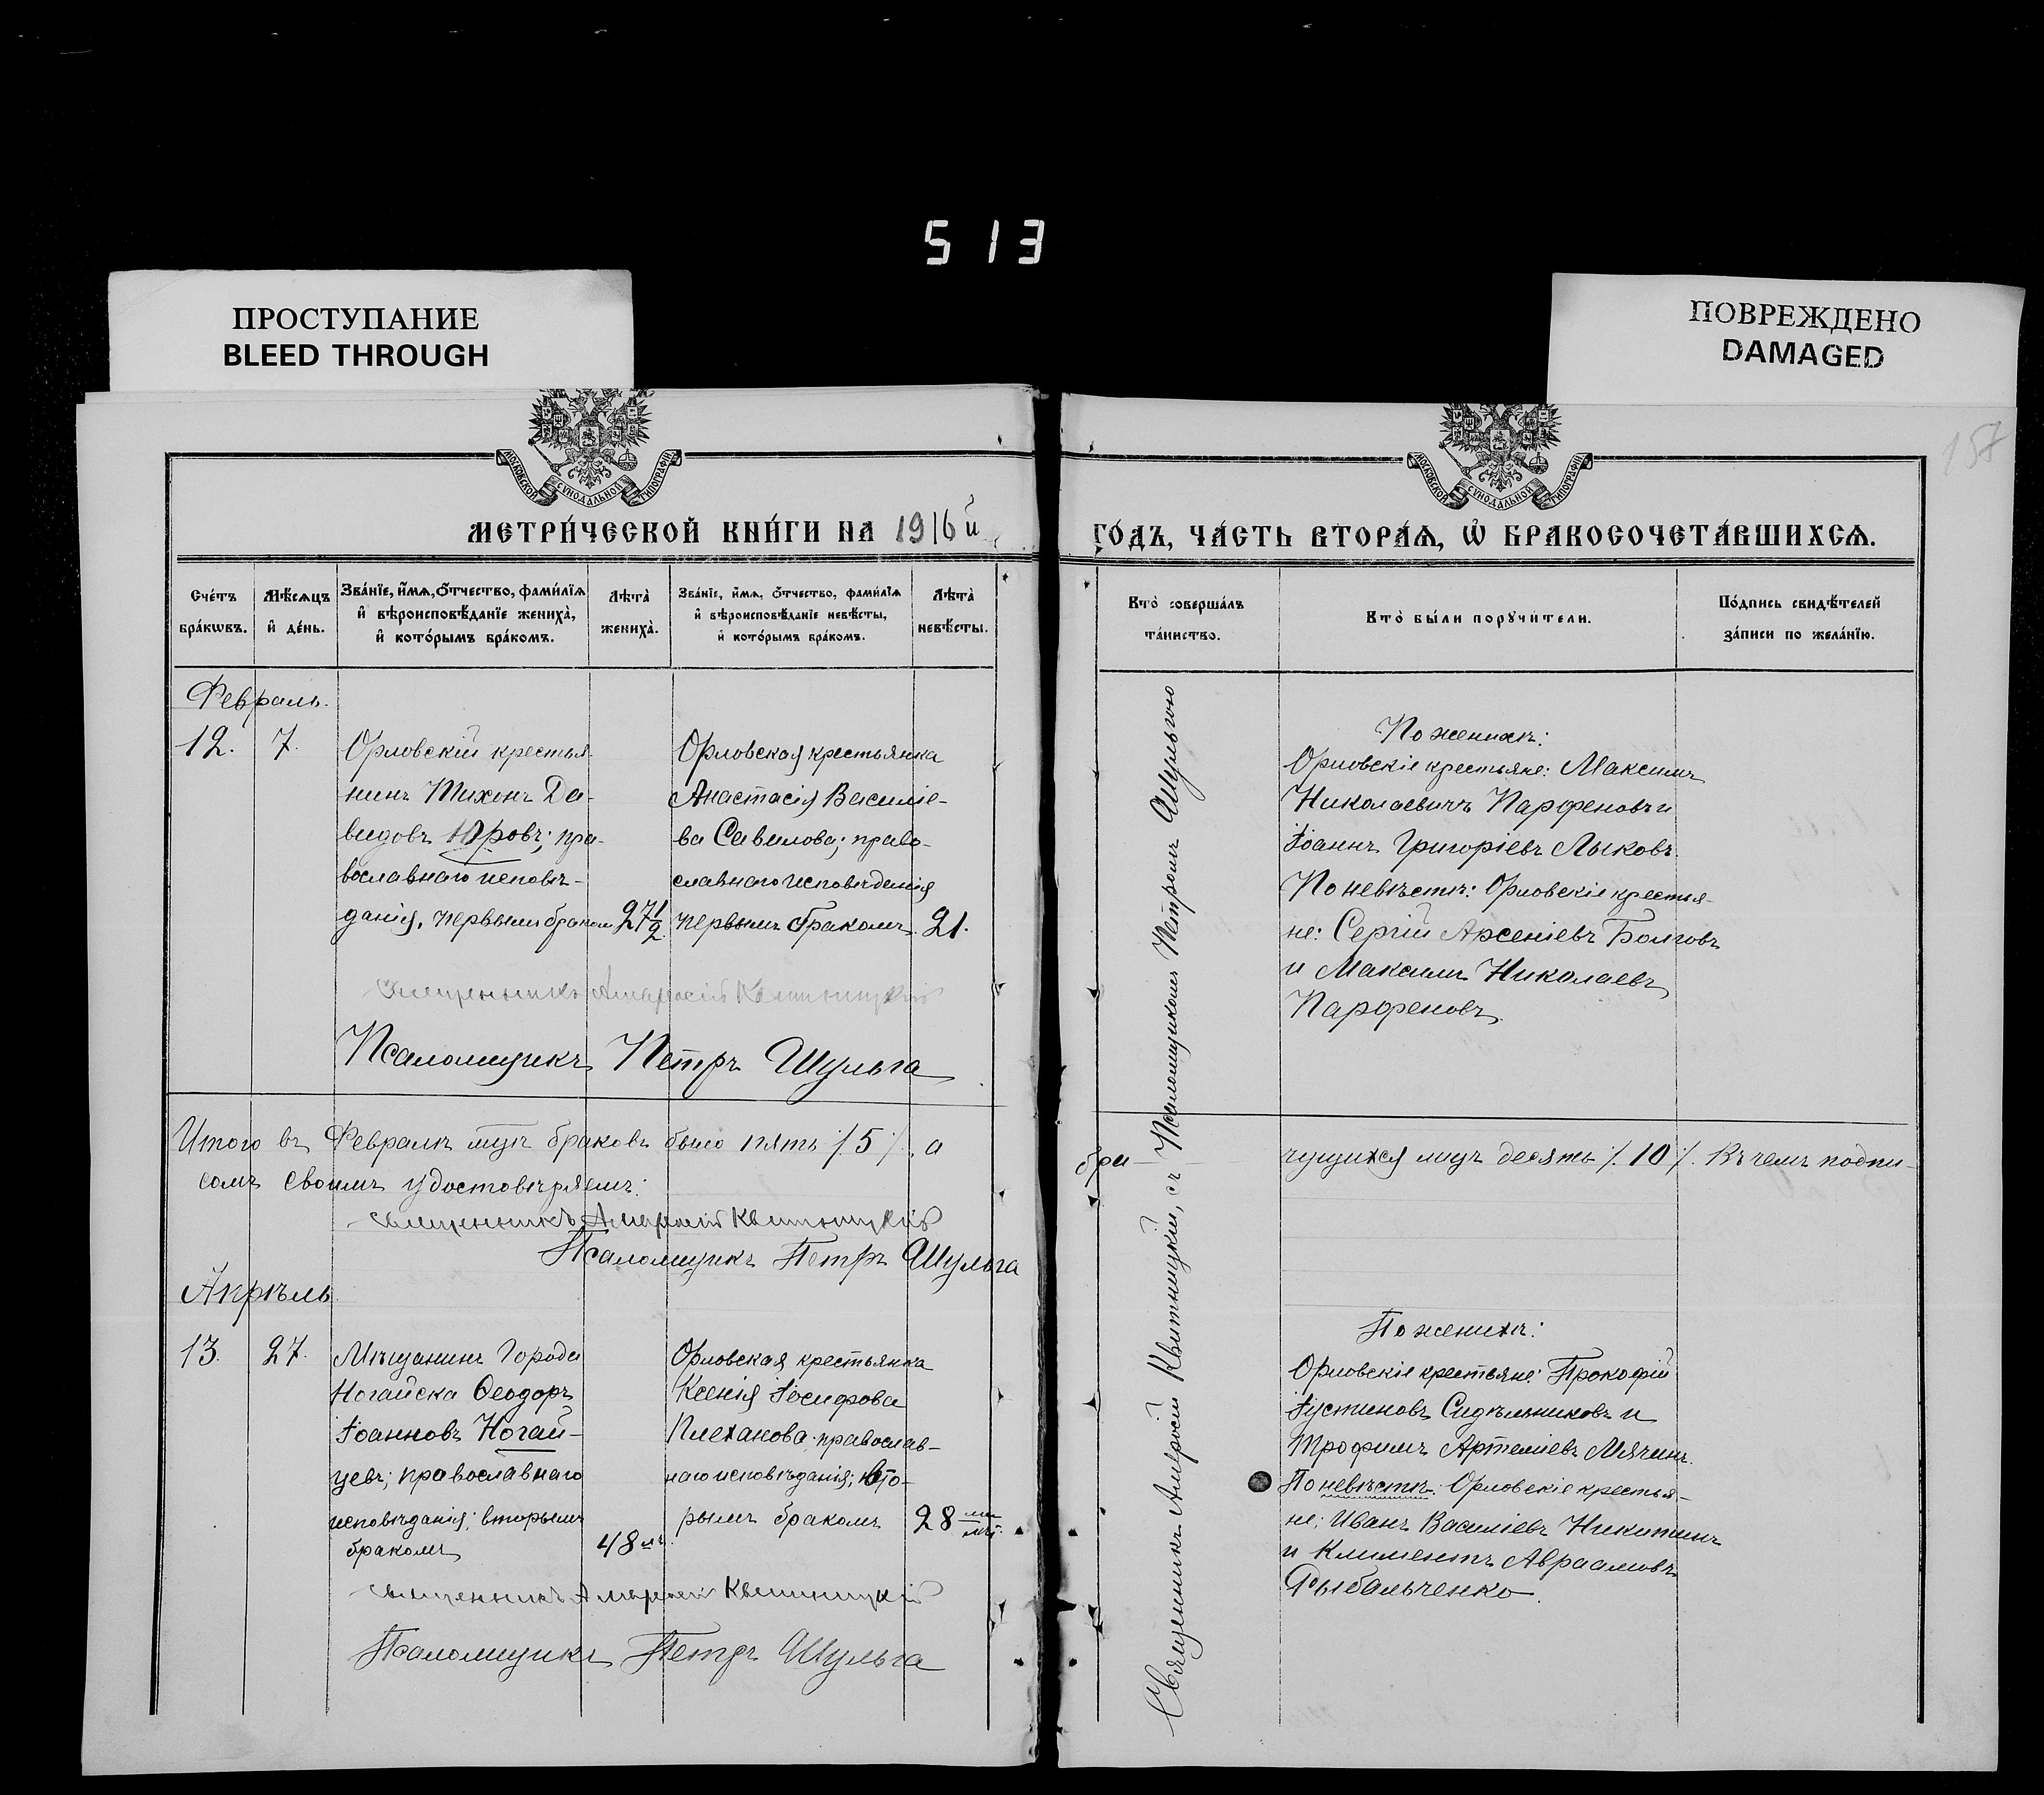 513
ПРОСТУПАНИЕ
BLEED THROUGH
ПОВРЕЖДЕНО
DAMAGED
157
МОСКОВСКОЙ СѴНОДАЛЬНОЙ ТИПОГРАФІИ
МОСКОВСКОЙ СѴНОДАЛЬНОЙ ТИПОГРАФІИ
МЕТРИ́ЧЕСКОЙ КНИ́ГИ НА 1916й
ГО́ДЪ, ЧА́СТЬ ВТОРА́Я, Ѡ҆ БРАКОСОЧЕТА́ВШИХСѦ.
Сче́тъ
бра́кѡвъ.
Мѣ́сѧцъ
и҆ де́нь.
Зва́нїе, и҆́мѧ, ѻ҆́тчество, фами́лїѧ
и҆ вѣроисповѣ́данїе жениха̀,
и҆ кото́рымъ бра́комъ.
Лѣ́та̀
жениха̀.
Зва́нїе, и҆́мѧ, ѻ҆́тчество, фами́лїѧ
и҆ вѣроисповѣ́данїе невѣ́сты,
и҆ кото́рымъ бра́комъ.
Лѣ́та̀
невѣ́сты.
Кто̀ соверша́лъ
та́инство.
Кто̀ бы́ли порꙋчи́тели.
По́дпись свидѣ́телей
за́писи по жела́нїю.
Февраль.
12. 7.
Орловскій крестья-
нинъ Тихонъ Да-
видовъ Юровъ; пра-
вославнаго исповѣ-
данія, первымъ бракомъ
27½
Орловская крестьянка
Анастасія Василіе-
ва Савилова; право-
славнаго исповѣданія
первымъ бракомъ.
21.
Священникъ Амвросій Квитницкій
Псаломщикъ Петръ Шульга
По женихѣ:
Орловскіе крестьяне: Максимъ
Николаевичъ Парфеновъ и
Іоаннъ Григоріевъ Лыковъ.
По невѣстѣ: Орловскіе крестья-
не: Сергій Арсеніевъ Болговъ
и Максимъ Николаевъ
Парфеновъ.
Итого въ Февралѣ мцѣ браковъ было пять /5/, а бра-
чущихся лицъ десять /10/. Въ чемъ подпи-
сомъ своимъ удостовѣряемъ:
Священникъ Амвросій Квитницкій
Псаломщикъ Петръ Шульга
Апрѣль
13. 27.
Мѣщанинъ Города
Ногайска Ѳеодоръ
Іоанновъ Ногай-
цевъ; православнаго
исповѣданія; вторымъ
бракомъ
48 лѣ.
Орловская крестьянка
Ксенія Іосифова
Плеханова православ-
наго исповѣданія; вто-
рымъ бракомъ
28
Священникъ Амвросій Квитницкій
Псаломщикъ Петръ Шульга
По женихѣ:
Орловскіе крестьяне: Прокофій
Іустиновъ Сидѣльниковъ и
Трофимъ Артеміевъ Мячинъ.
По невѣстѣ: Орловскіе крестья-
не: Иванъ Василіевъ Никитинъ
и Климентъ Авраамовъ
Рыбальченко.
Священникъ Амвросій Квитницкій, съ Псаломщикомъ Петромъ Шульгою